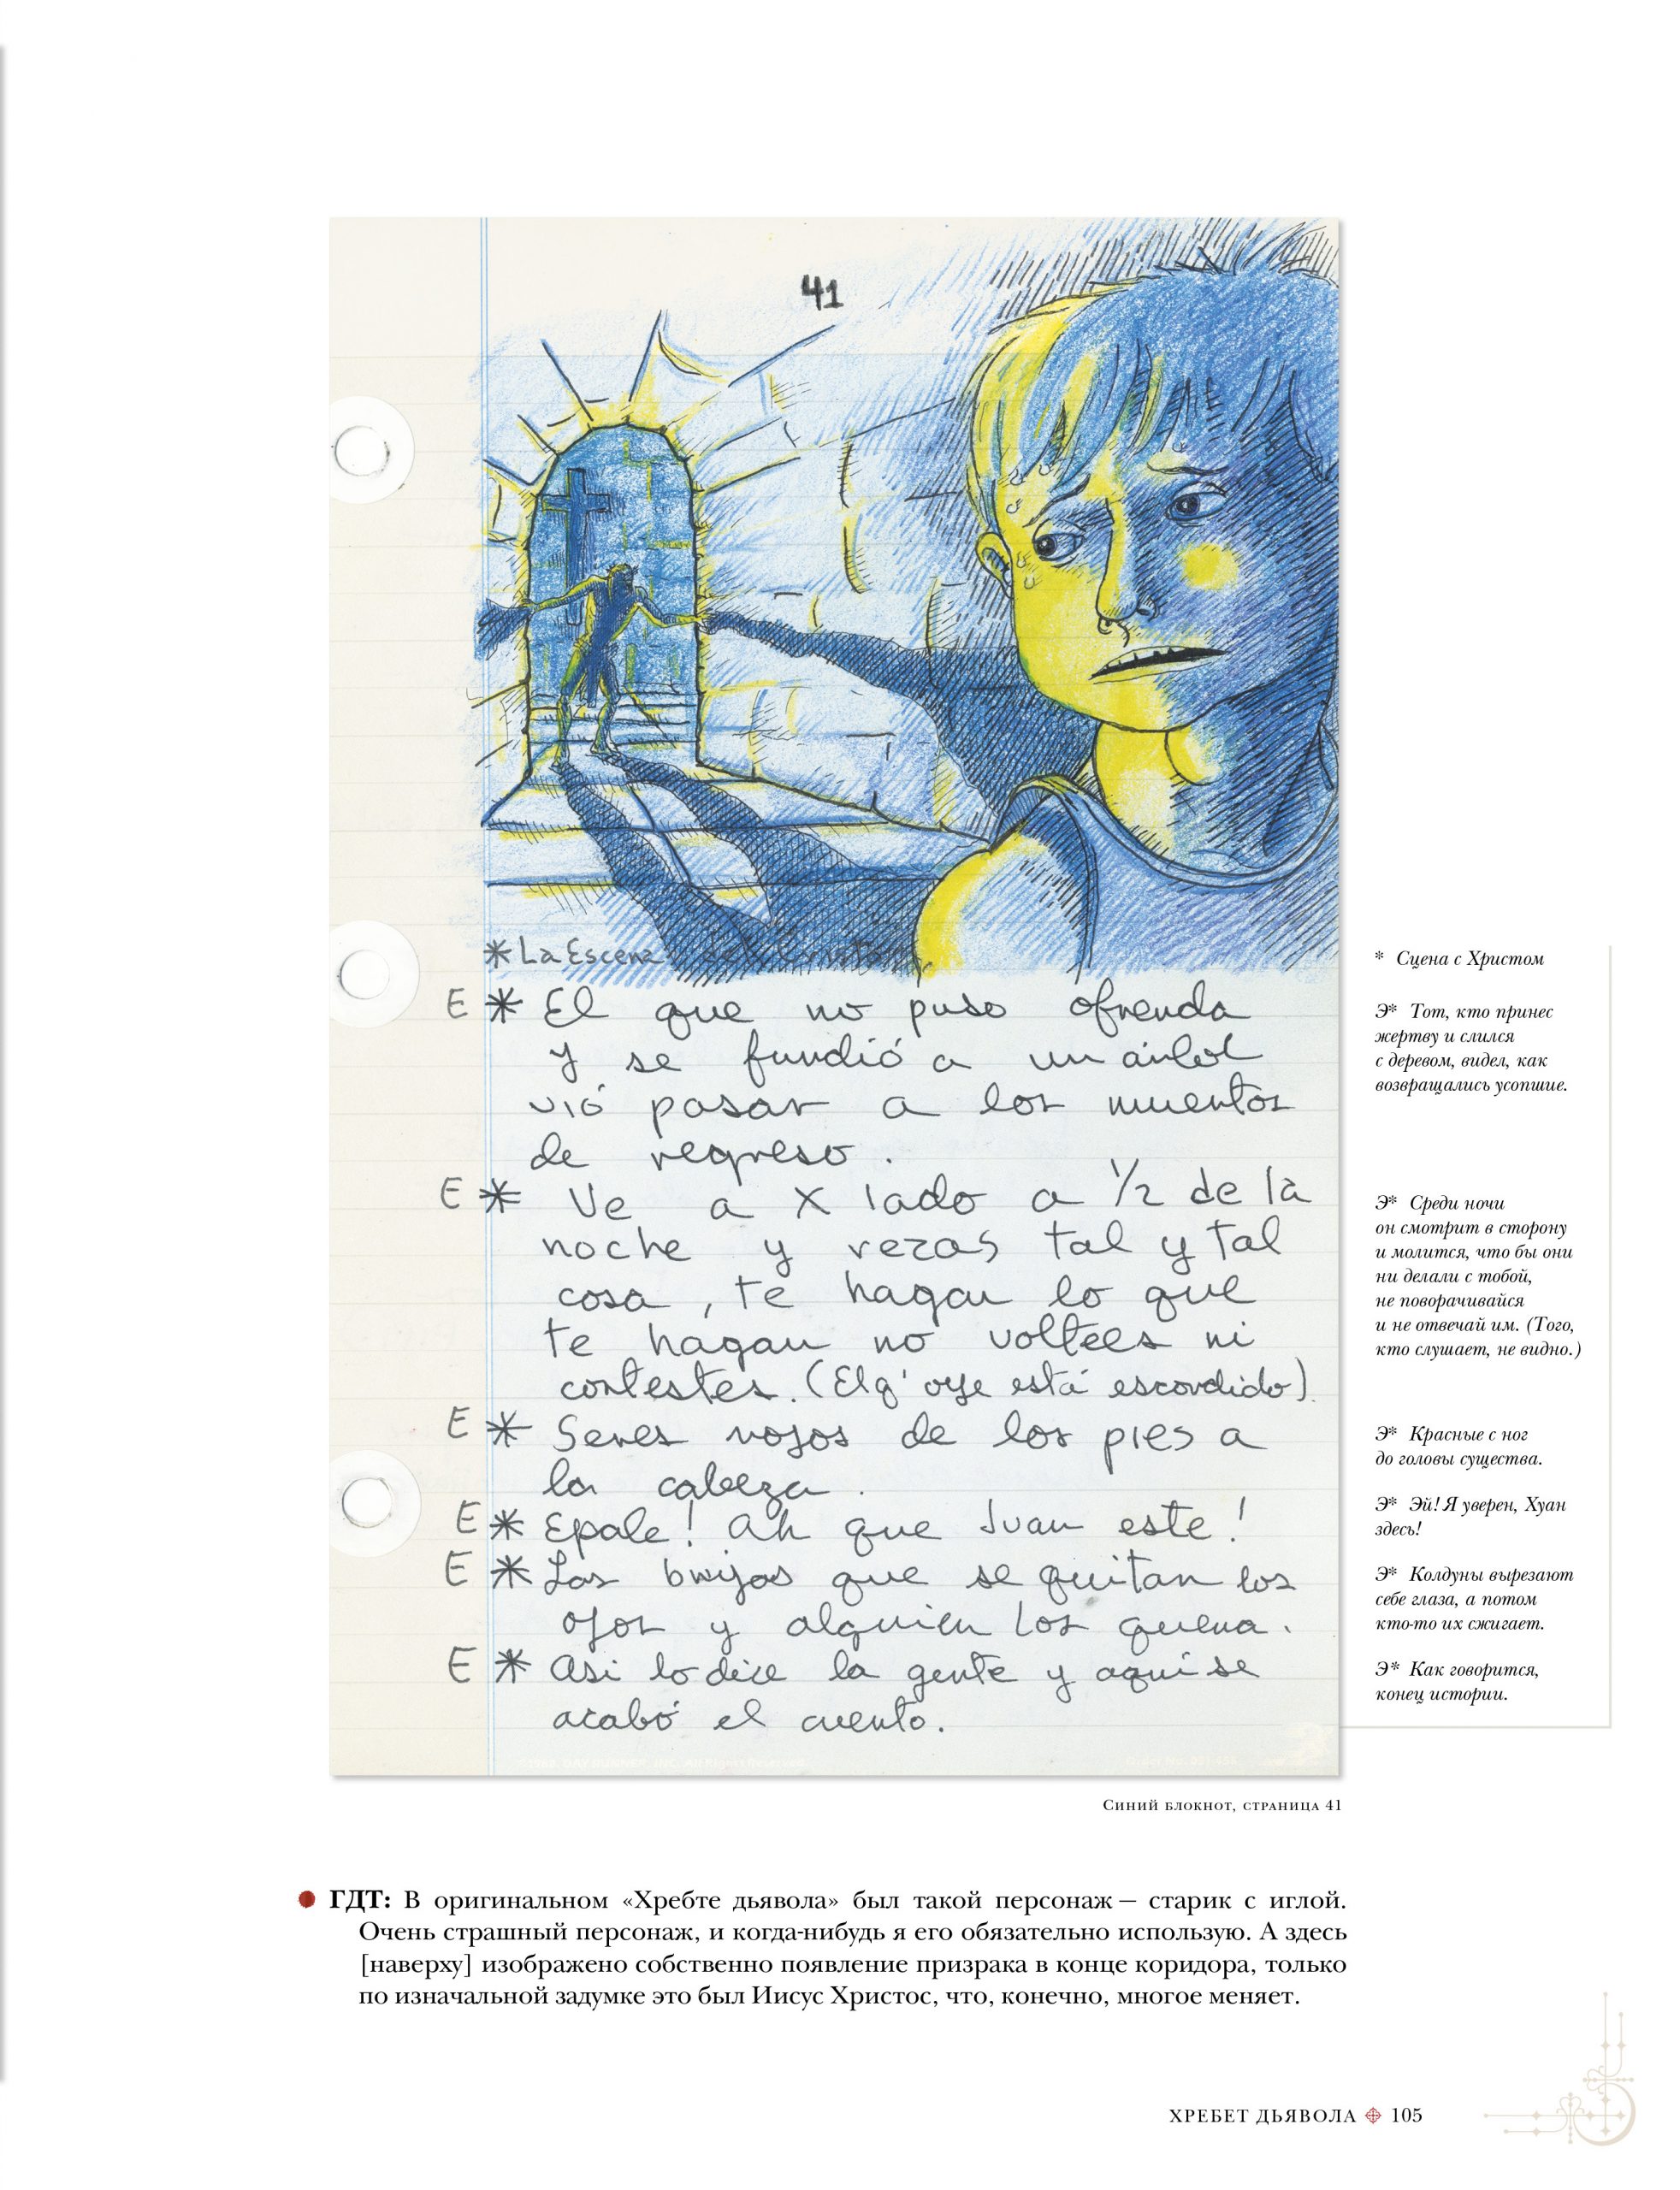 41
* La Escena del Cristo
E * El que no puso ofrenda
y se fundió a un árbol
vió pasar a los muertos
de regreso.
E * Ve a X lado a 1/2 de la
noche y rezas tal y tal
cosa, te hagan lo que
te hagan no voltees ni
contestes. (El q' oye está escondido)
E * Seres rojos de los pies a
la cabeza.
E * Epale! ah que Juan este!
E * Las brujas que se quitan los
ojos y alguien los quema.
E * Asi lo dice la gente y aquí se
acabó el cuento.
* Сцена с Христом
Э* Тот, кто принес
жертву и слился
с деревом, видел, как
возвращались усопшие.
Э* Среди ночи
он смотрит в сторону
и молится, что бы они
ни делали с тобой,
не поворачивайся
и не отвечай им. (Того,
кто слушает, не видно.)
Э* Красные с ног
до головы существа.
Э* Эй! Я уверен, Хуан
здесь!
Э* Колдуны вырезают
себе глаза, а потом
кто-то их сжигает.
Э* Как говорится,
конец истории.
Синий блокнот, страница 41
ГДТ: В оригинальном «Хребте дьявола» был такой персонаж — старик с иглой.
Очень страшный персонаж, и когда-нибудь я его обязательно использую. А здесь
[наверху] изображено собственно появление призрака в конце коридора, только
по изначальной задумке это был Иисус Христос, что, конечно, многое меняет.
ХРЕБЕТ ДЬЯВОЛА 105